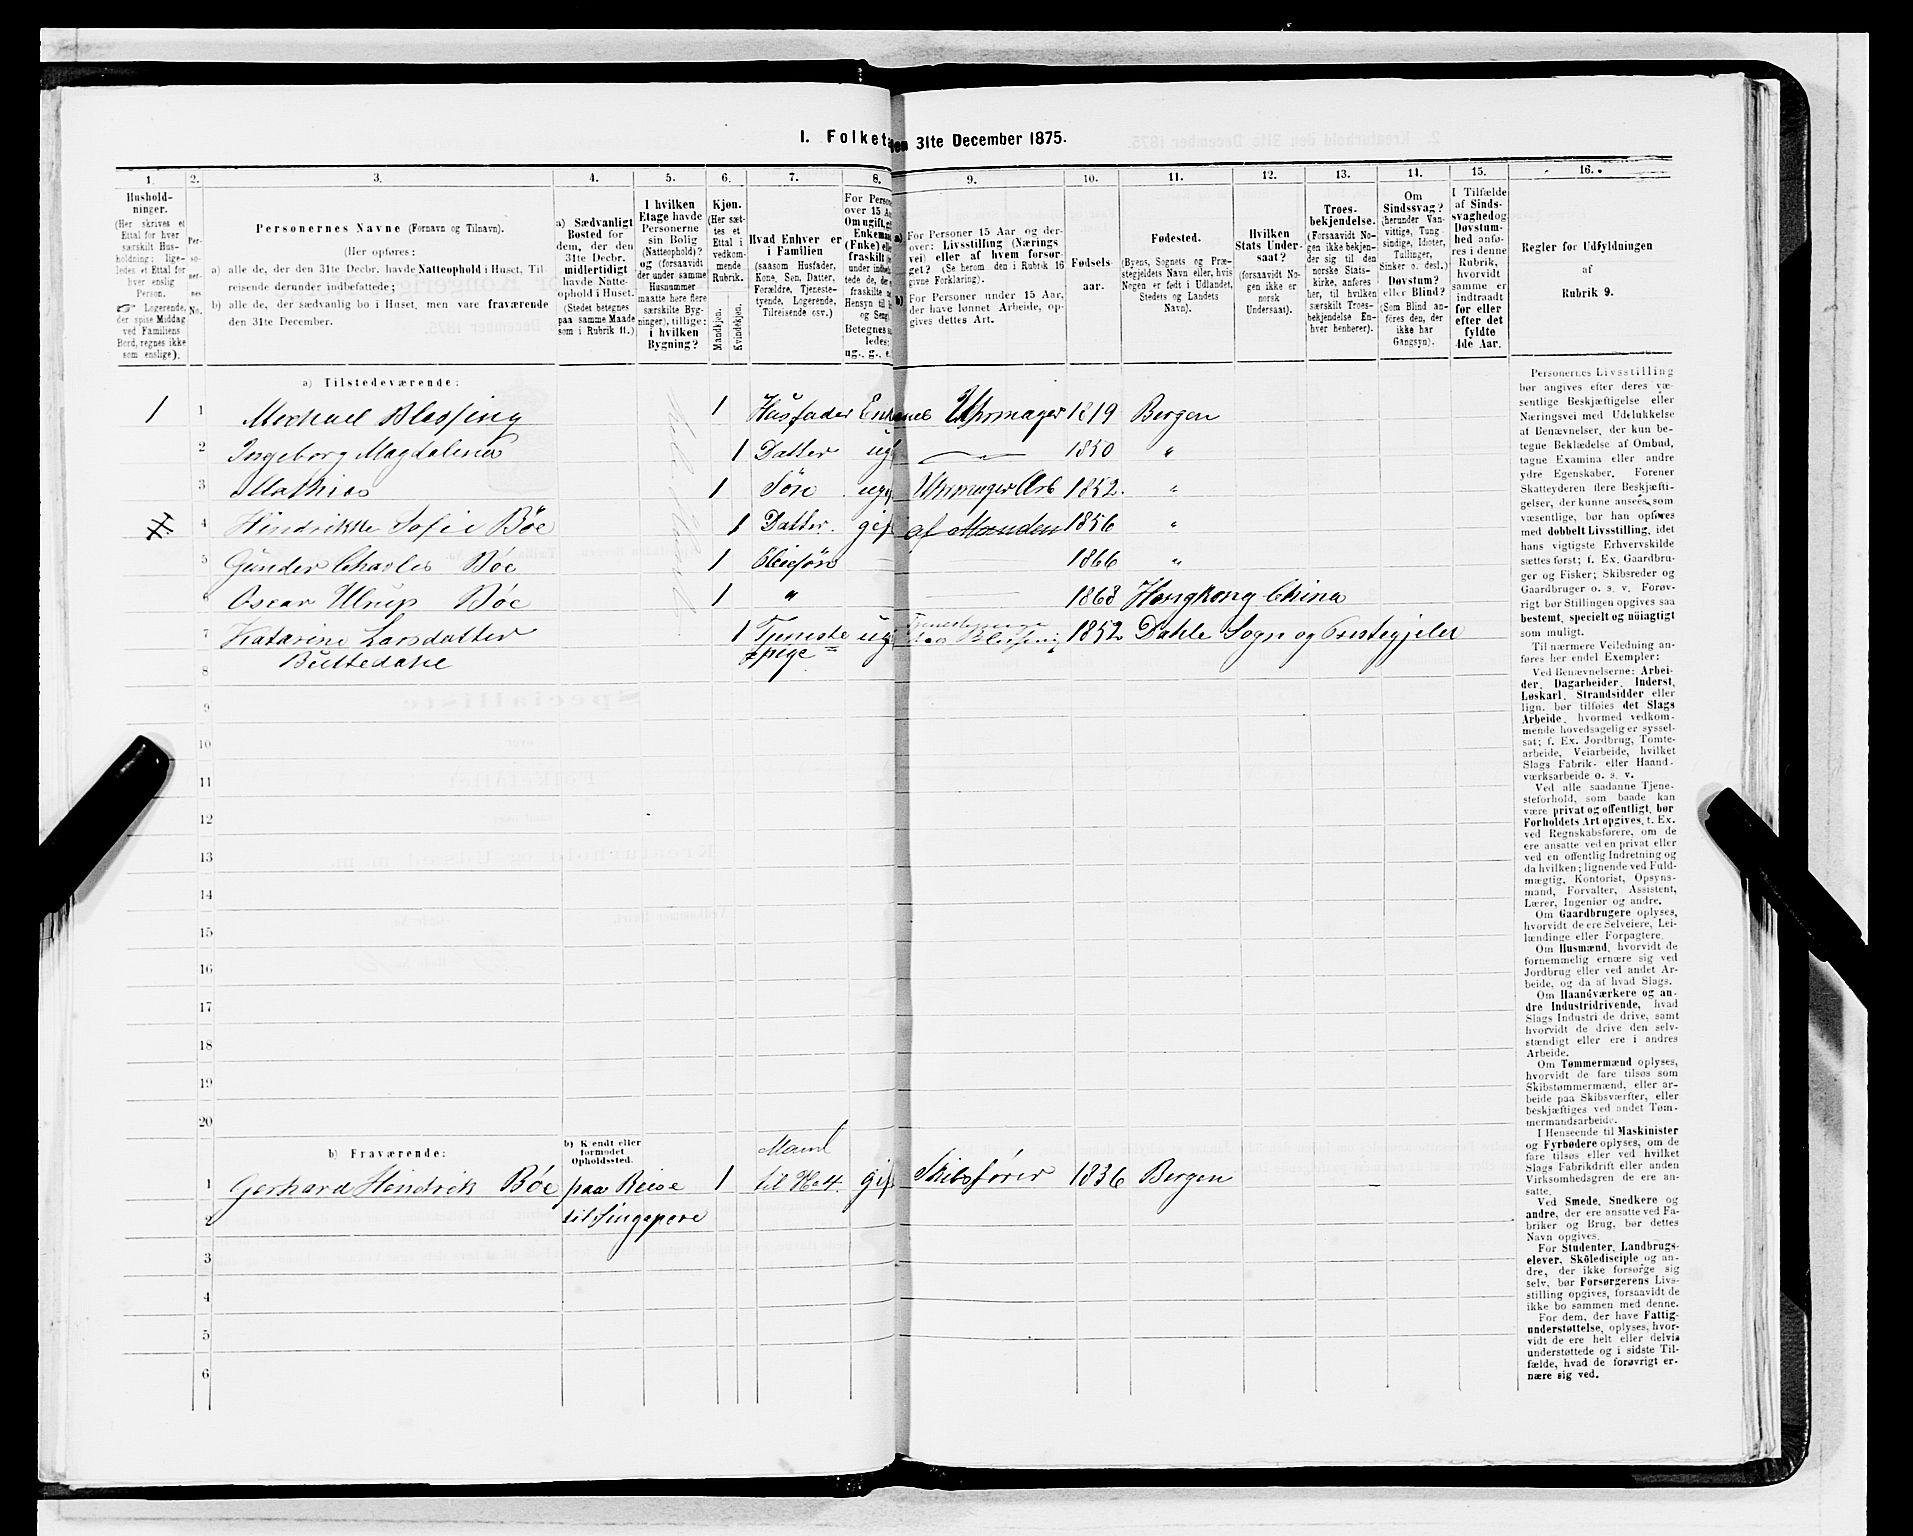 1. Folketa
den 31te December 1875.
1. 2. 3. 4. 5. 6. 7. 8. 9. 10. 11. 12. 13. 14. 15. 16.
Hushold-
ninger.
(Her skrives et
Ettal for hver
særskilt Hus-
holdning; lige-
ledes et Ettal for
hver enslig
Person.
Logerende,
der spise Middag
ved Familiens
Bord, regnes ikke
som enslige).
Per-
so-
ner-
nes
No.
Personernes Navne (Fornavn og Tilnavn).
(Her opføres:
a) alle de, der den 31te Decbr. havde Natteophold i Huset, Til
reisende derunder indbefattede;
b) alle de, der sædvanlig bo i Huset, men vare fraværende
den 31te December.
a) Sædvanligt
Bosted for
dem, der den
31te Decbr.
midlertidigt
havde Natte-
ophold i Huset.
(Stedet betegnes
paa samme Maade
som i Rubrik 11.)
I hvilken
Etage havde
Personerne
sin Bolig
(Natteophold)?
og (forsaavidt
der under samme
Husnummer
maatte høre flere
særskilte Byg-
ninger), tillige:
i hvilken
Bygning?
Kjøn.
(Her sæt-
tes et
Ettal i
vedkom-
mende
Rubrik.
Mandkjøn.
Kvindekjøn.
Hvad Enhver er
i Familien
(saasom Husfader,
Kone, Søn, Datter,
Forældre, Tjeneste-
tyende, Logerende,
Tilreisende osv.)
For Person
over 15 Aa
Om ugift, gi
Enkemand
(Enke) elle
fraskilt
Betegnes
ledes:
ug., g., e
a) For Personer 15 Aar og der-
over: Livsstilling (Nærings
vei) eller af hvem forsør-
get? (Se herom den i Rubrik 16
givne Forklaring).
b) For Personer under 15 Aar,
der have lønnet Arbeide, op-
gives dettes Art.
Fødsels-
aar.
Fødested.
(Byens, Sognets og Præ-
stegjeldets Navn eller, hvis
Nogen er født i Udlandet,
Stedets og Landets
Navn).
Hvilken
Stats Under-
saat?
(forsaavidt No-
gen ikke er
norsk
Undersaat).
Troes-
bekjendelse.
(Forsaavidt No-
gen ikke bekjen-
der sig til den
norske Stats-
kirke, anføres
her, til hvilken
særskilt Troes-
bekjendelse En-
hver henhører).
Om
Sindssvag?
(herunder Van-
vittige, Tung
sindige, Idioter,
Tullinger,
Sinker o. desl.)
Døvstum?
eller Blind?
(Som Blind an-
føres den, der
ikke har
Gangsyn).
I Tilfælde
af Sinds-
svaghed og
Døvstum-
hed anfø-
res i denne
Rubrik,
hvorvidt
samme er
indtraadt
før eller
efter det
fyldte
4de Aar.
Regler for Udfyldningen
af
Rubrik 9.
a) Tilstedeværende:
1 1 Michael Blessing 1 Husfader Enkemd Uhrmager 1819 Bergen
2 Ingeborg Magdalena 1 Datter ug 1850 "
3 Mathias 1 Søn ug Uhrmager Arb 1852. "
4 Hindrikke Sofie Bøe 1 Datter. gif af Manden 1856 "
5 Gunder Charles Bøe 1 Pleiesøn 1866 "
6 Oscar Ulrup Bøe 1 " 1868 Hongkong China
7 Katarine Larsdatter 1 Tjeneste ug Tjenestepige 1852 Dahle Sogn og Prestegjeld
8 pige hos Blessing
9
10
11
12
13
14
15
16
17
18
19
20
b) Fraværende:
b) Kjendt eller
formodet
Opholdssted.
Mand
1 Gerhard Hendrik Bøe paa Reise 1 til No 4. gif Skibsfører 1836 Bergen
2 til Singapore
3
4
5
6
Personernes Livsstilling
bør angives efter deres væ-
sentlige Beskjæftigelse eller
Næringsvei med Udelukkelse
af Benævnelser, der kun be-
tegne Beklædelse af Ombud,
tagne Examina eller andre
ydre Egenskaber. Forener
Skatteyderen flere Beskjæfti-
gelser, der kunne ansees som
væsentlige, bør han opføres
med dobbelt Livsstilling, idet
hans vigtigste Erhvervskilde
sættes først; f. Ex. Gaardbru-
ger og Fisker; Skibsreder og
Gaardbruger o. s. v. Forøv-
rigt bør Stillingen opgives saa
bestemt, specielt og nøiagtigt
som muligt.
Til nærmere Veiledning an-
føres her endel Exempler:
Ved Benævnelserne: Arbei-
der, Dagarbeider, Inderst,
Løskarl, Strandsidder eller
lign. bør tilføies det Slags
Arbeide, hvormed vedkom-
mende hovedsagelig er syssel-
sat; f. Ex. Jordbrug, Tomte-
arbeide, Veiarbeide, hvilket
Slags Fabrik- eller Haand-
værksarbeide o. s. v.
Ved alle saadanne Tjene-
steforhold, som baade kan
være privat og offentligt, bør
Forholdets Art opgives, t. Ex.
ved Regnskabsførere, om de
ere ansatte ved en privat eller
ved en offentlig Indretning og
da hvilken; lignende ved Fuld-
mægtig, Kontorist, Opsyns-
mand, Forvalter, Assistent,
Lærer, Ingeniør og andre.
Om Gaardbrugere oplyses,
hvorvidt de ere Selveiere, Lei-
lændinge eller Forpagtere.
Om Husmænd, hvorvidt de
fornemmelig ernære sig ved
Jordbrug eller ved andet Ar-
beide, og da af hvad Slags.
Om Haandværkere og an-
dre Industridrivende, hvad
Slags Industri de drive, samt
hvorvidt de drive den selv-
stændigt eller ere i andres
Arbeide.
Om Tømmermænd oplyses,
hvorvidt de fare tilsøs som
Skibstømmermænd, eller ar-
beide paa Skibsværfter, eller
beskjæftiges ved andet Tøm-
mermandsarbeide.
I Henseende til Maskinister
og Fyrbødere oplyses, om de
fare tilsøs eller ved hvilket
Slags Fabrikdrift eller anden
Virksomhedsgren de ere an-
satte.
Ved Smede, Snedkere og
andre, der ere ansatte ved Fa-
briker og Brug, bør dettes
Navn opgives.
For Studenter, Landbrugs-
elever, Skoledisciple og an-
dre, der ikke forsørge sig
selv, bør Forsørgerens Livs-
stilling opgives, forsaavidt de
ikke bo sammen med denne.
For dem, der have Fattig-
understøttelse, oplyses, hvor-
vidt de ere helt eller delvis
understøttede og i sidste Til-
fælde, hvad de forøvrigt er-
nære sig ved.